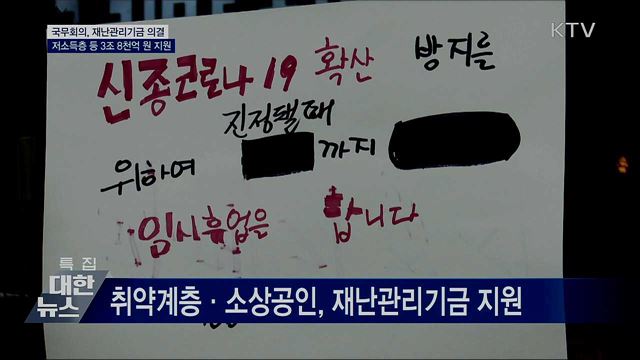 국무회의, 재난관리기금 의결
저소득층 등 3조 8천억 원 지원
KTV
신종코로나 19 확산 방지를
진정될때
위하여 까지
임시휴업은 합니다
특집
대한
뉴스
취약계층·소상공인, 재난관리기금 지원